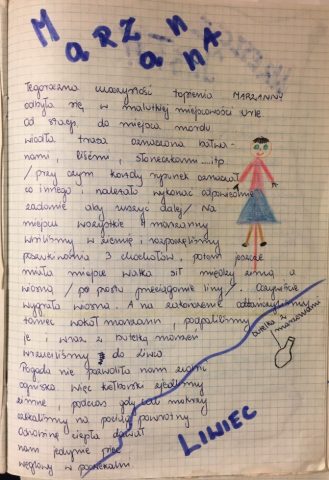 MARZANNA
Tegoroczna uroczystość topienia MARZANNY
odbyła się w malutkiej miejscowości URLE
Od stacji do miejsca mordu
wiodła trasa oznaczona kotwa-
nami, liśćmi, słoneczkami....itp
/przy czym każdy rysunek oznaczał
co innego i należało wykonać odpowiednie
zadanie aby ruszyć dalej/ Na
miejscu wszystkie 4 marzanny
wbiliśmy w ziemię i rozpoczęliśmy
poszukiwania 3 chochołów, potem jeszcze
miała miejsce walka sił między zimą a
wiosną /po prostu przeciąganie liny/. Oczywiście
wygrała wiosna. A na zakończenie odtańczyliśmy
taniec wokół marzann, podpaliliśmy
je i wraz z butelką marzeń
wrzuciliśmy do Liwca.
Pogoda nie pozwoliła nam rozpalić
ogniska, więc kiełbaski zjedliśmy
zimne, podczas gdy
czekaliśmy na pociąg powrotny
Odrobinę ciepła dawał
nam jedynie piec
węglowy w poczekalni
butelka z
marzeniami
LIWIEC